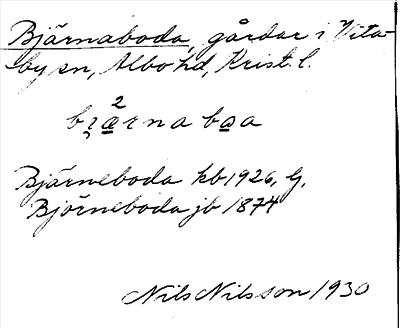 Bjärnaboda, gårdar i Vita-
by sn, Albo hd, Krist. l.
bi̯æ²rna boa
Bjärneboda kb 1926, G,
Björneboda jb 1874
Nils Nilsson 1930